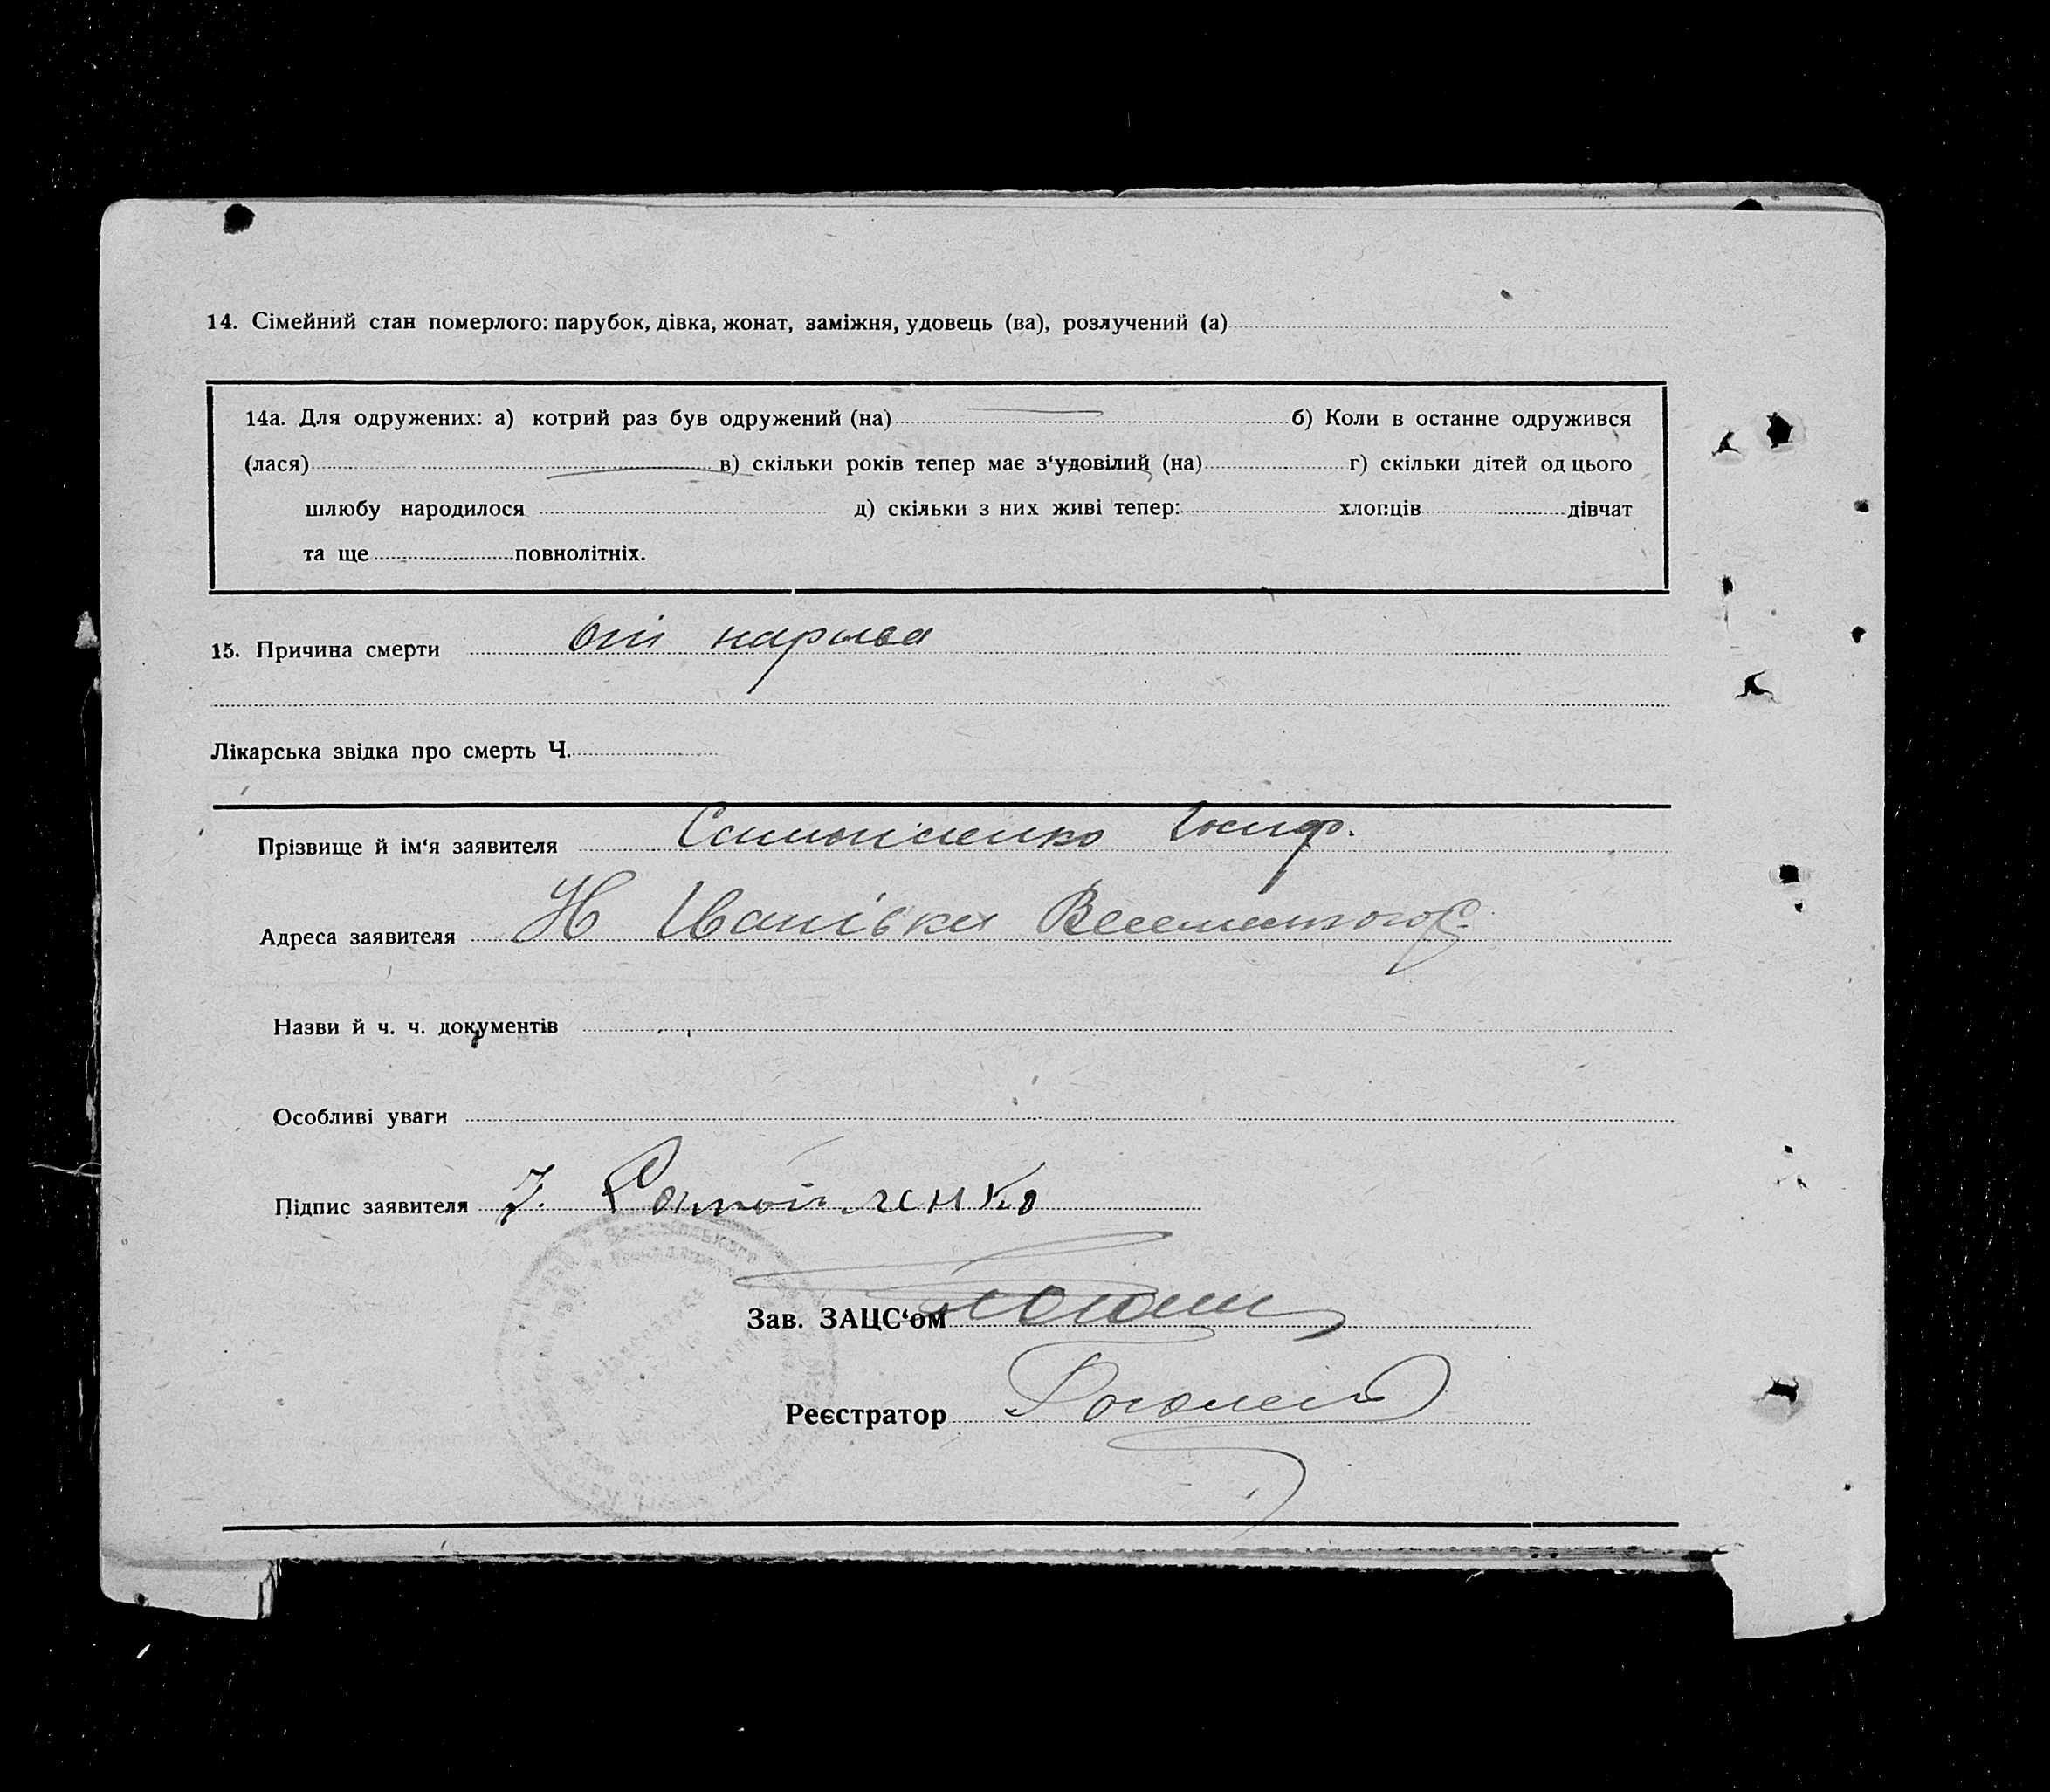 14. Сімейний стан померлого: парубок, дівка, жонат, заміжня, удовець (ва), розлучений (а)
14а. Для одружених: а) котрий раз був одружений (на) б) Коли в останне одружився
(лася) в) скільки років тепер має з‘удовілий (на) г) скільки дітей од цього
шлюбу народилося д) скільки з них живі тепер: хлопців дівчат
та ще повнолітніх.
15. Причина смерти От нарыва
Лікарська звідка про смерть Ч.
Прізвище й ім‘я заявителя Самойленко
Адреса заявителя Н Іванівка
Назви й ч. ч. документів
Особливі уваги
Підпис заявителя Самойленко
Зав. ЗАЦС‘ом
Реєстратор